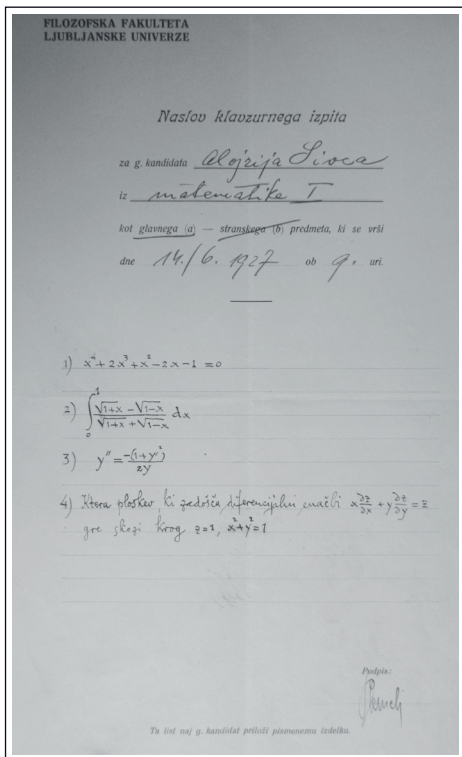 FILOZOFSKA FAKULTETA
LJUBLJANSKE UNIVERZE
Naslov klavzurnega izpita
za g. kandidata Alojzija Sivca
iz matematike I
kot glavnega (a) — stranskega (b) predmeta, ki se vrši
dne 14./6. 1927 ob 9. uri.
1) x⁴ + 2x³ + x² − 2x − 1 = 0
2) ∫₀¹ (√(1+x) − √(1−x)) / (√(1+x) + √(1−x)) dx
3) y″ = −(1 + y′²) / 2y
4) Ktera ploskev, ki zadošča diferencijalni enačbi x ∂z/∂x + y ∂z/∂y = z
gre skozi krog z=1, x²+y²=1
Podpis:
Ta list naj g. kandidat priloži pismenemu izdelku.